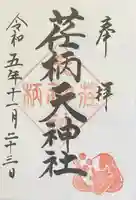 奉拝
荏柄天神社
令和五年十一月二十三日